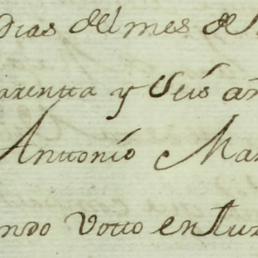 Dias del mes de
arentta y Seis añ
Anttonio Mar
ndo Votto en Jun